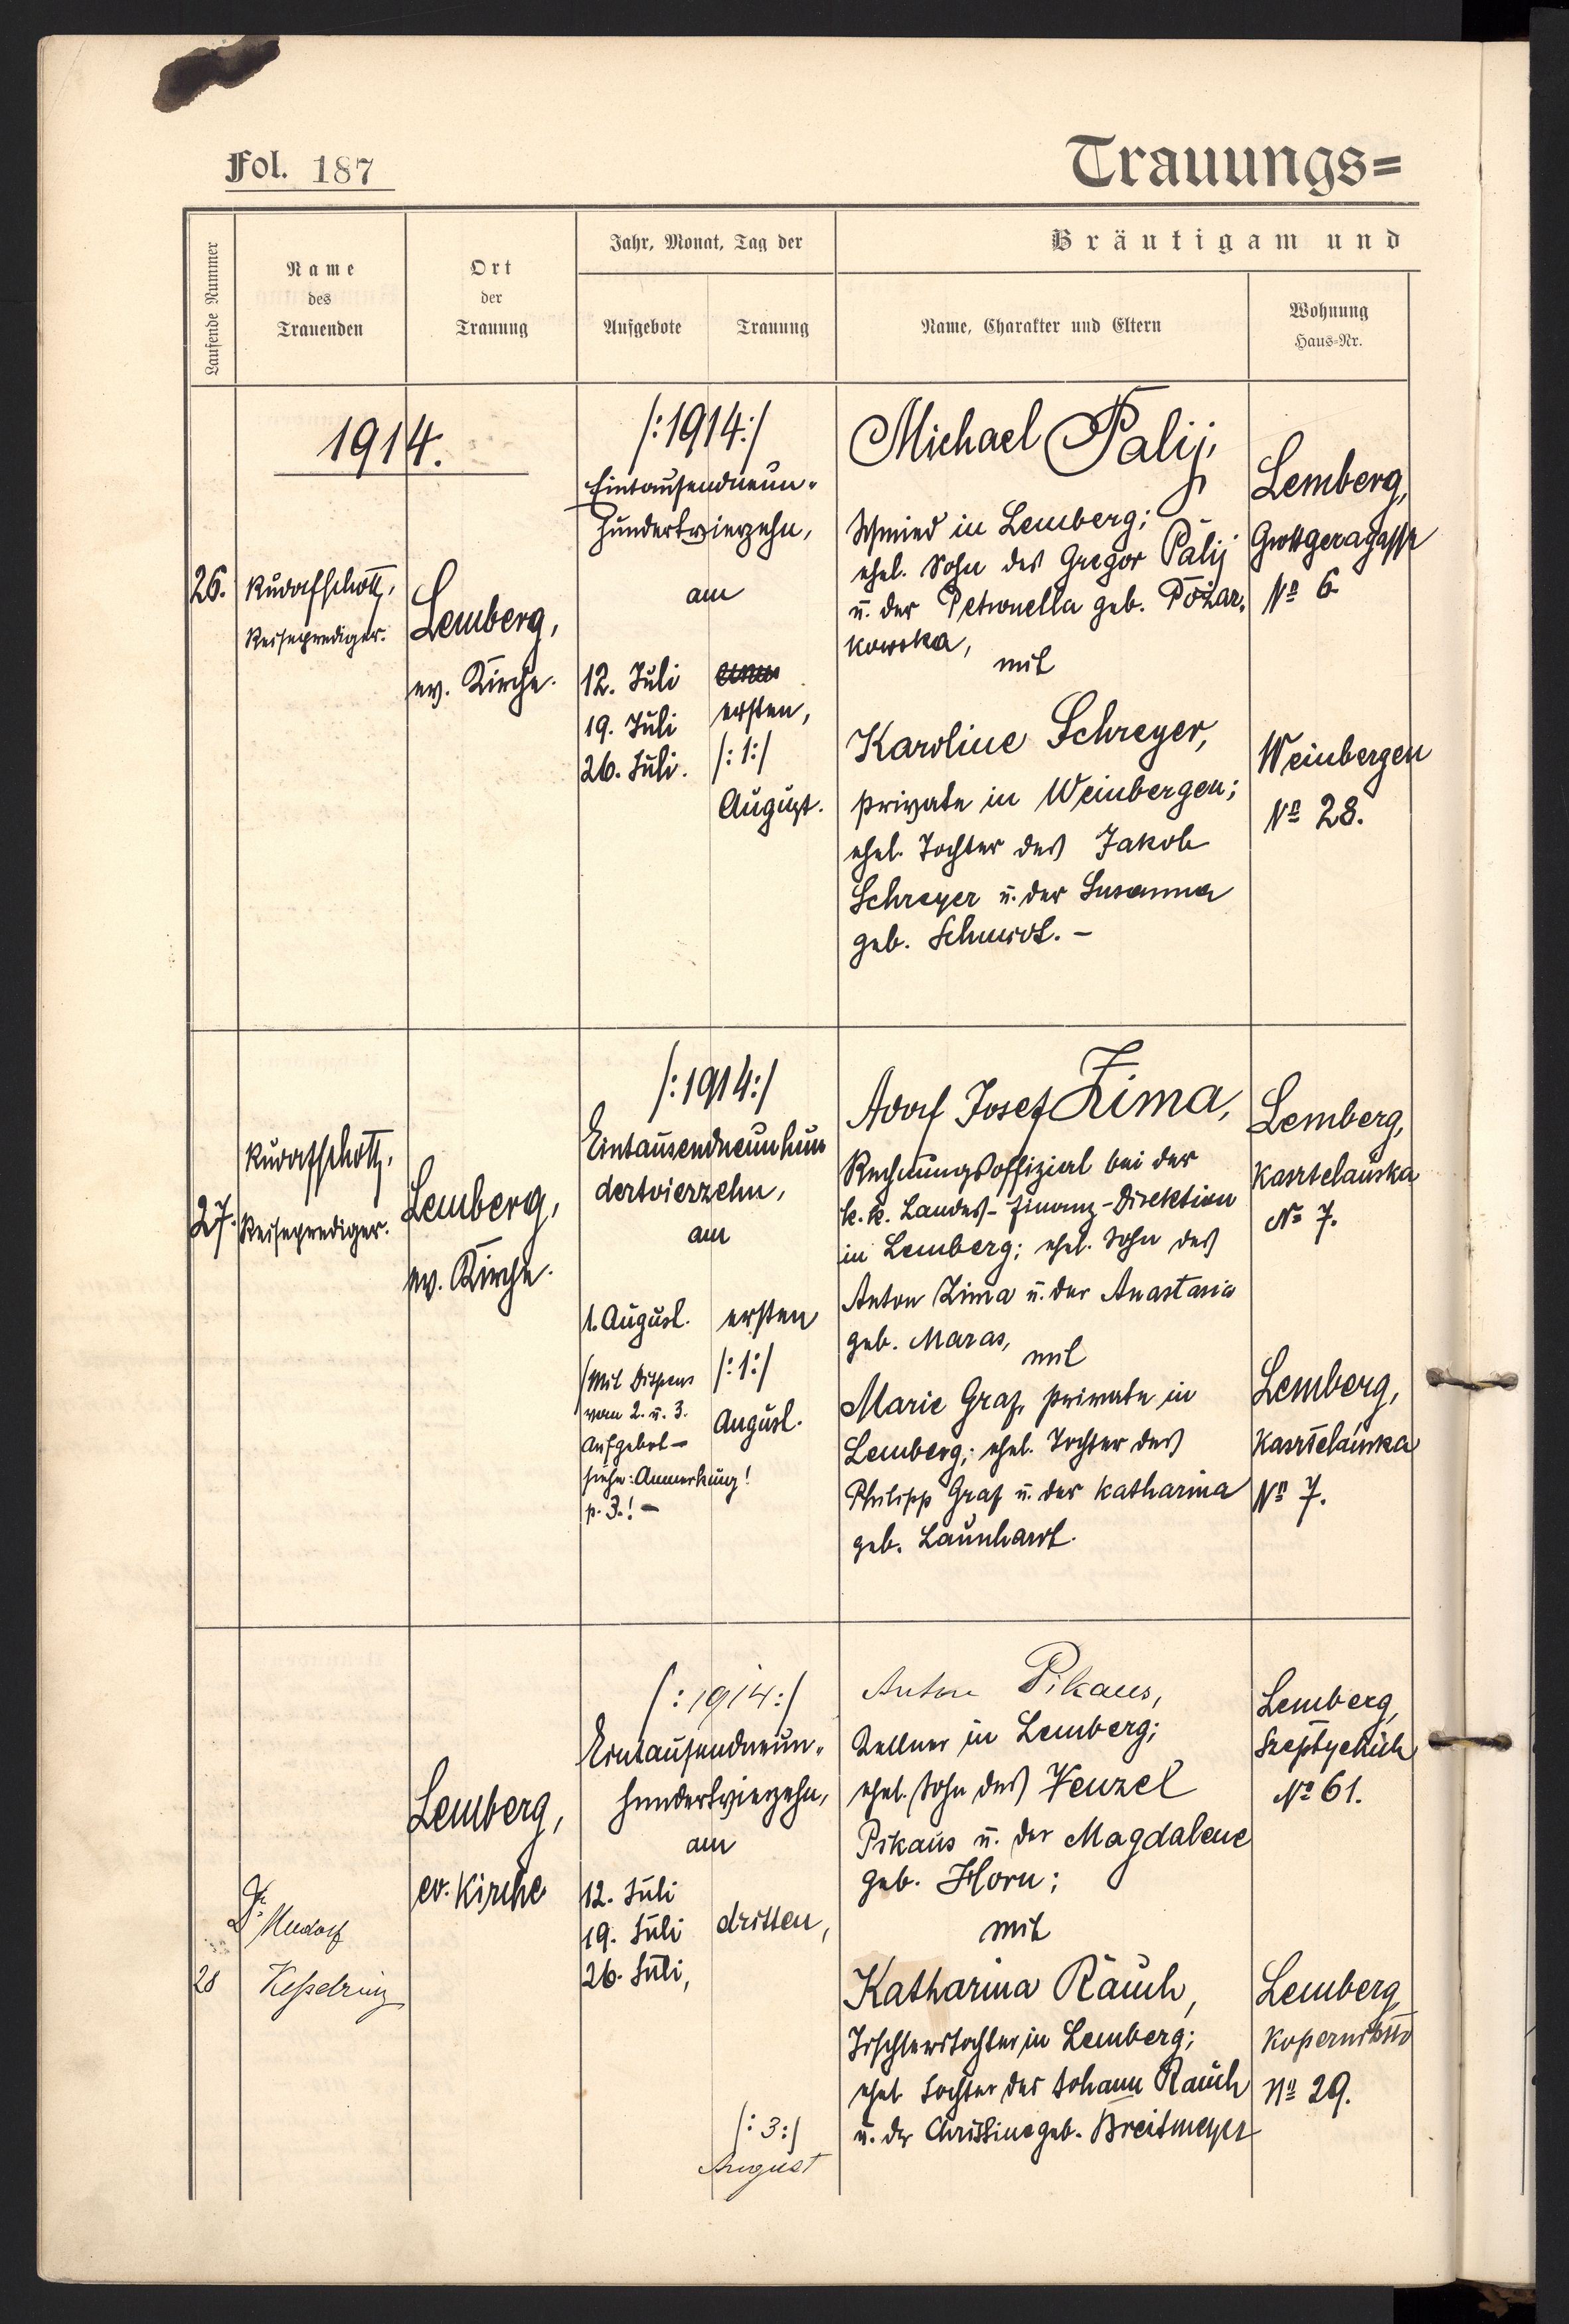 Fol. 187
Trauungs=
Laufende Nummer
Name
des
Trauenden
Ort
der
Trauung
Jahr, Monat, Tag der
Aufgebote
Trauung
Bräutigam und
Name, Charakter und Eltern
Wohnung
Haus=Nr.
1914.
26.
Rudolf Schott,
Reiseprediger.
Lemberg,
ev. Kirche.
/:1914:/
Eintausendneun-
hundertvierzehn,
am
12. Juli
19. Juli
26. Juli.
ersten,
/:1:/
August.
Michael Palij,
Schmied in Lemberg;
ehel. Sohn des Gregor Palij
u. der Petronella geb. Pożar-
kowska,
mit
Karoline Schreyer,
Private in Weinbergen;
ehel. Tochter des Jakob
Schreyer u. der Susanna
geb. Schmidt. –
Lemberg,
Grottgeragasse
No 6
Weinbergen
No 28.
27.
Rudolf Schott,
Reiseprediger.
Lemberg,
ev. Kirche.
/:1914:/
Eintausendneunhun
dertvierzehn,
am
1. August.
(Mit Dispens
vom 2. u. 3.
Aufgebot –
siehe: Anmerkung!
p. 3.! –
ersten
/:1:/
August.
Adolf Josef Zima,
Rechnungsoffizial bei der
k. k. Landes-Finanz-Direktion
in Lemberg; ehel. Sohn des
Anton Zima u. der Anastasia
geb. Maras,
mit
Marie Graf, Private in
Lemberg; ehel. Tochter des
Philipp Graf u. der Katharina
geb. Launhardt.
Lemberg,
Kasztelańska
No 7.
Lemberg,
Kasztelańska
No 7.
28
Dr. Rudolf
Kesselring
Lemberg,
ev. Kirche
/:1914:/
Eintausendneun-
hundertvierzehn,
am
12. Juli
19. Juli
26. Juli,
dritten,
/:3:/
August
Anton Pikaus,
Kellner in Lemberg;
ehel. Sohn des Wenzel
Pikaus u. der Magdalene
geb. Horn;
mit
Katharina Rauch,
Tischlerstochter in Lemberg;
ehel. Tochter des Johann Rauch
u. der Christine geb. Breitmeyer
Lemberg,
Szeptyckich
No 61.
Lemberg,
Kopernika
No 29.